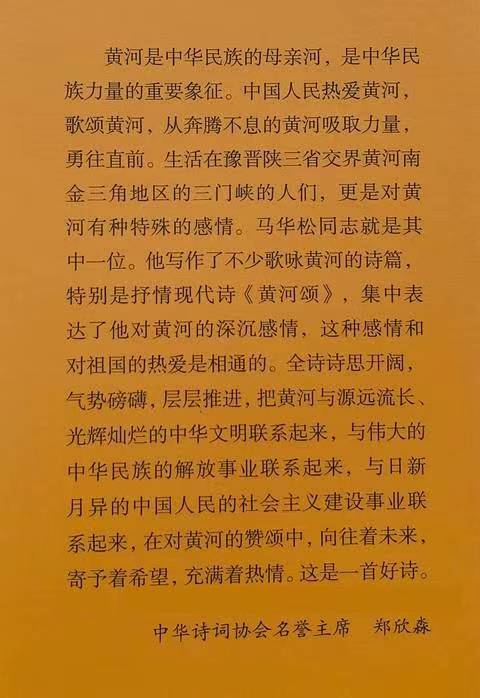 黄河是中华民族的母亲河，是中华民
族力量的重要象征。中国人民热爱黄河，
歌颂黄河，从奔腾不息的黄河吸取力量，
勇往直前。生活在豫晋陕三省交界黄河南
金三角地区的三门峡的人们，更是对黄
河有种特殊的感情。马华松同志就是其
中一位。他写作了不少歌咏黄河的诗篇，
特别是抒情现代诗《黄河颂》，集中表
达了他对黄河的深沉感情，这种感情和
对祖国的热爱是相通的。全诗诗思开阔，
气势磅礴，层层推进，把黄河与源远流长、
光辉灿烂的中华文明联系起来，与伟大的
中华民族的解放事业联系起来，与日新
月异的中国人民的社会主义建设事业联
系起来，在对黄河的赞颂中，向往着未来，
寄予着希望，充满着热情。这是一首好诗。
中华诗词协会名誉主席　郑欣淼